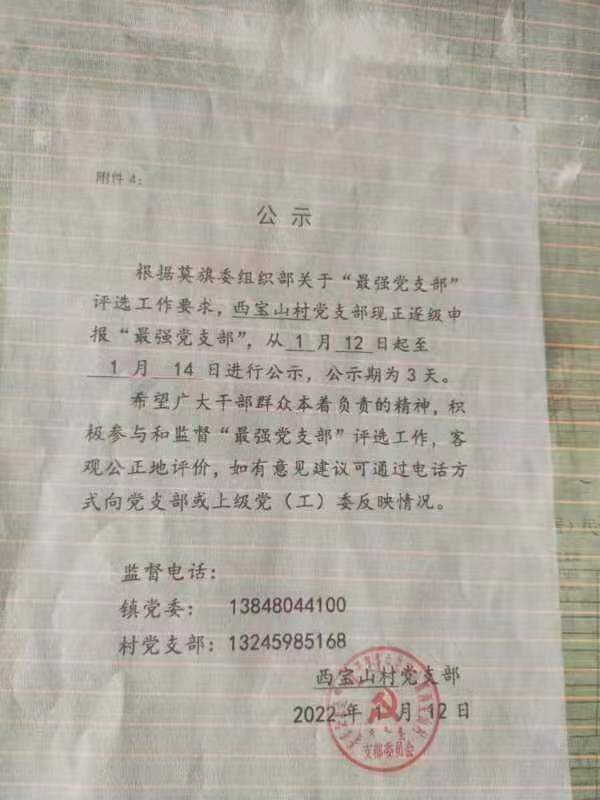 附件 4：
公 示
根据莫旗委组织部关于“最强党支部”
评选工作要求，西宝山村党支部现正逐级申
报“最强党支部”，从 1 月 12 日起至
1 月 14 日进行公示，公示期为 3 天。
希望广大干部群众本着负责的精神，积
极参与和监督“最强党支部”评选工作，客
观公正地评价，如有意见建议可通过电话方
式向党支部或上级党（工）委反映情况。
监督电话：
镇党委： 13848044100
村党支部：13245985168
西宝山村党支部
2022 年 1 月 12 日
支部委员会